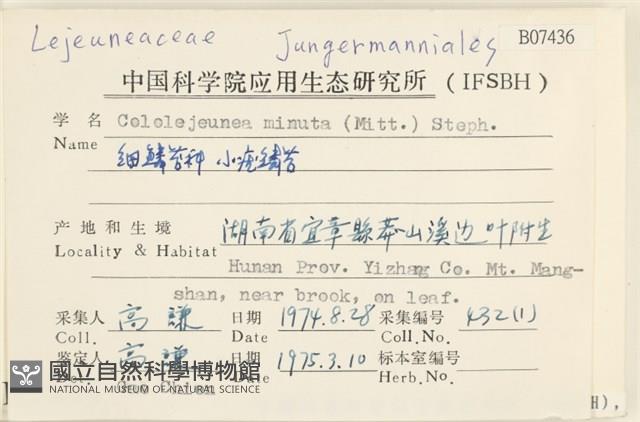 Lejeuneaceae Jungermanniales B07436
中国科学院应用生态研究所 (IFSBH)
学名 Cololejeunea minuta (Mitt.) Steph.
Name
细鳞苔科 小疣鳞苔
产地和生境 湖南省宜章縣莽山溪边叶附生
Locality & Habitat Hunan Prov. Yizhang Co. Mt. Mang-
shan, near brook, on leaf.
采集人 高謙 日期 1974.8.28 采集编号 432(1)
Coll. Date Coll.No.
鉴定人 高謙 日期 1975.3.10 标本室编号
Det. Date Herb.No.
國立自然科學博物館
NATIONAL MUSEUM OF NATURAL SCIENCE
H),